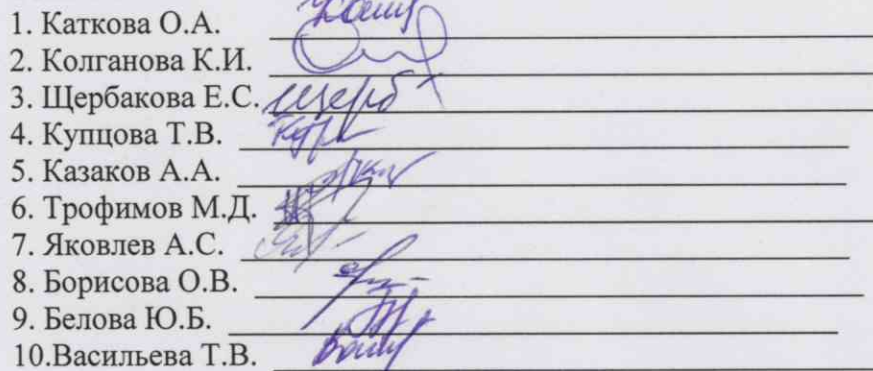 1. Каткова О.А.
2. Колганова К.И.
3. Щербакова Е.С. Щерб
4. Купцова Т.В.
5. Казаков А.А.
6. Трофимов М.Д.
7. Яковлев А.С.
8. Борисова О.В.
9. Белова Ю.Б.
10.Васильева Т.В.